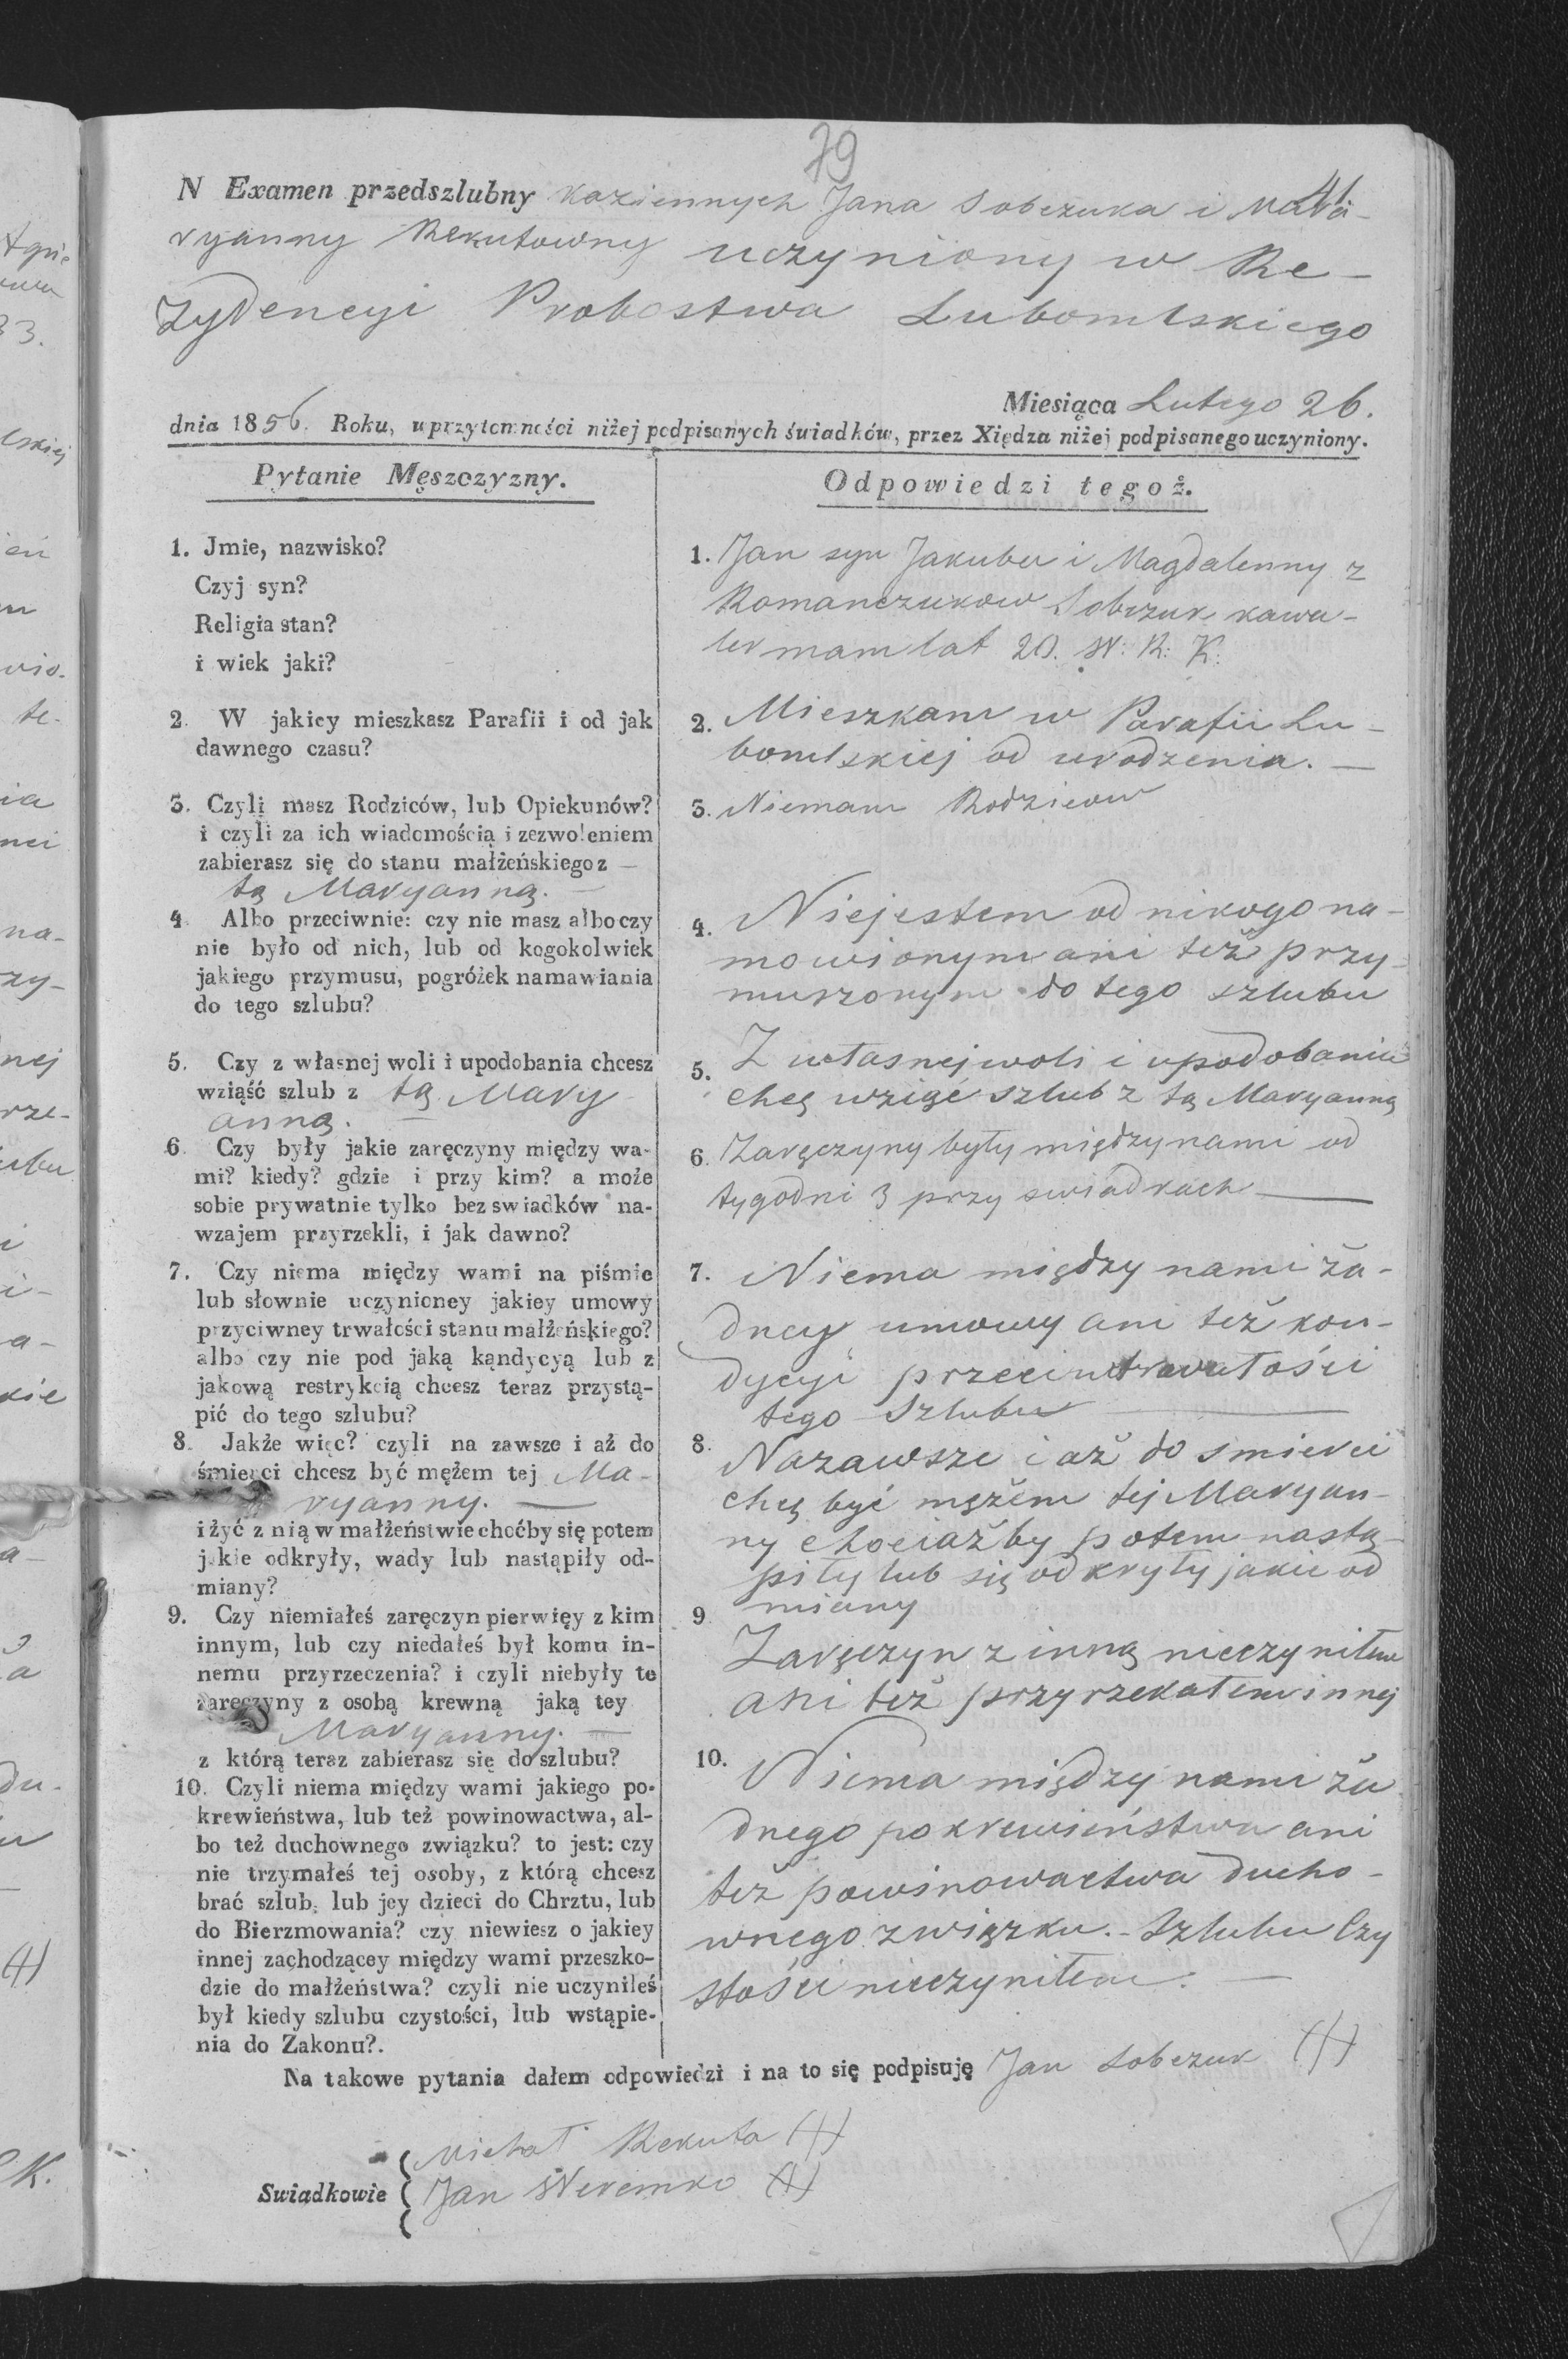 79
41
N Examen przedszlubny kaziennych Jana Sobczuka i Ma-
ryanny Rekutowny uczyniony w Re-
zydencyi Probostwa Lubomlskiego
Miesiąca Lutego 26.
dnia 1856. Roku, w przytomności niżej podpisanych świadków, przez Xiędza niżej podpisanego uczyniony.
Pytanie Męszczyzny.
1. Jmie, nazwisko?
Czyj syn?
Religia stan?
i wiek jaki?
2. W jakiey mieszkasz Parafii i od jak
dawnego czasu?
3. Czyli masz Rodziców, lub Opiekunów?
i czyli za ich wiadomością i zezwoleniem
zabierasz się do stanu małżeńskiego z —
tą Maryanną. —
4. Albo przeciwnie: czy nie masz albo czy
nie było od nich, lub od kogokolwiek
jakiego przymusu, pogróżek namawiania
do tego szlubu?
5. Czy z własnej woli i upodobania chcesz
wziąść szlub z tą Mary
anną. —
6. Czy były jakie zaręczyny między wa-
mi? kiedy? gdzie i przy kim? a może
sobie prywatnie tylko bez swiadków na-
wzajem przyrzekli, i jak dawno?
7. Czy niema między wami na piśmie
lub słownie uczynioney jakiey umowy
przyciwney trwałości stanu małżeńskiego?
albo czy nie pod jaką kądycyą lub z
jakową restrykcią chcesz teraz przystą-
pić do tego szlubu?
8. Jakże więc? czyli na zawsze i aż do
śmierci chcesz być mężem tej Ma-
ryanny. —
i żyć z nią w małżeństwie choćby się potem
jakie odkryły, wady lub nastąpiły od-
miany?
9. Czy niemiałeś zaręczyn pierwięy z kim
innym, lub czy niedałeś był komu in-
nemu przyrzeczenia? i czyli niebyły te
zaręczyny z osobą krewną jaką tey
Maryanny. —
z którą teraz zabierasz się do szlubu?
10. Czyli niema między wami jakiego po-
krewieństwa, lub też powinowactwa, al-
bo też duchownego związku? to jest: czy
nie trzymałeś tej osoby, z którą chcesz
brać szlub, lub jey dzieci do Chrztu, lub
do Bierzmowania? czy niewiesz o jakiey
innej zachodzącey między wami przeszko-
dzie do małżeństwa? czyli nie uczyniłeś
był kiedy szlubu czystości, lub wstąpie-
nia do Zakonu?.
Odpowiedzi tegoż.
1. Jan syn Jakuba i Magdalenny z
Romanczukow Sobczuk kawa-
ler mam lat 20. W: R: K:
2. Mieszkam w Parafii Lu-
bomlskiej od urodzenia. —
3. Niemam Rodzicow
4. Niejestem od nikogo na-
mowionym ani też przy-
muszonym do tego szlubu
5. Z własnej woli i upodobania
chcę wziąć szlub z tą Maryanną
6. Zaręczyny były między nami od
tygodni 3 przy swiadkach —
7. Niema między nami ża-
dney umowy ani też kon-
dycyi przeciw trwałości
tego Szlubu —
8. Nazawsze i aż do smierci
chcę być mężem tej Maryan-
ny chociażby potem nastą-
piły lub się odkryły jakie od
miany
9. Zaręczyn z inną nieczyniłem
ani też przyrzekałem innej
10. Niema między nami ża
dnego pokrewieństwa ani
też powinowactwa ducho-
wnego związku. - Szlubu Czy
stości nieczyniłem. —
Na takowe pytania dałem odpowiedzi i na to się podpisuję Jan Sobczuk (+)
Swiadkowie
Michał Rekuta (+)
Jan Weremko (+)